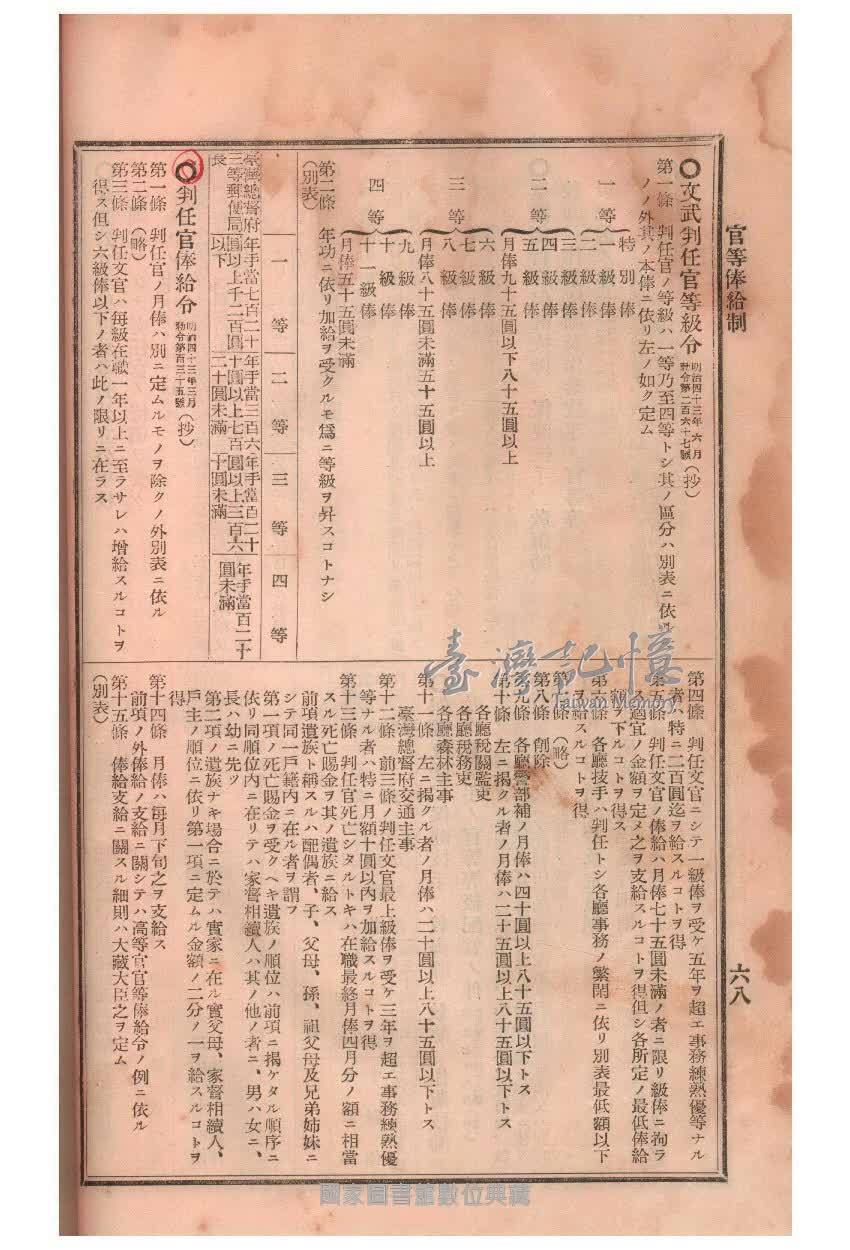 官等俸給制
六八
○文武判任官等級令 明治四十三年六月勅令第二百六十七號(抄)
第一條 判任官ノ等級ハ一等乃至四等トシ其ノ區分ハ別表ニ依ル
ノノ外其ノ本俸ニ依リ左ノ如ク定ム
一等
特別俸
一級俸
二級俸
二等
三級俸
四級俸
五級俸
月俸九十五圓以下八十五圓以上
三等
六級俸
七級俸
八級俸
月俸八十五圓未滿五十五圓以上
四等
九級俸
十級俸
十一級俸
月俸五十五圓未滿
第二條 年功ニ依リ加給ヲ受クルモ爲ニ等級ヲ昇スコトナシ
(別表)
一等
二等
三等
四等
臺灣總督府三等郵便局長
年手當七百二十圓以上千二百圓以下
年手當三百六十圓以上七百二十圓未滿
年手當百二十圓以上三百六十圓未滿
年手當百二十圓未滿
○判任官俸給令 明治四十三年三月勅令第百三十五號(抄)
第一條 判任官ノ月俸ハ別ニ定ムルモノヲ除クノ外別表ニ依ル
第二條 (略)
第三條 判任文官ハ毎級在職一年以上ニ至ラサレハ增給スルコトヲ
得ス但シ六級俸以下ノ者ハ此ノ限リニ在ラス
第四條 判任文官ニシテ一級俸ヲ受ケ五年ヲ超エ事務練熟優等ナル
者ハ特ニ二百圓迄ヲ給スルコトヲ得
第五條 判任文官ノ俸給ハ月俸七十五圓未滿ノ者ニ限リ級俸ニ拘ラ
ス適宜ノ金額ヲ定メ之ヲ支給スルコトヲ得但シ各所定ノ最低俸給
額ヲ下ルコトヲ得ス
第六條 各廳技手ハ判任トシ各廳事務ノ繁閑ニ依リ別表最低額以下
ヲ給スルコトヲ得
第七條 (略)
第八條 削除
第九條 各廳警部補ノ月俸ハ四十圓以上八十五圓以下トス
第十條 左ニ揭クル者ノ月俸ハ二十五圓以上八十五圓以下トス
各廳稅關監吏
各廳稅務吏
各廳森林主事
第十一條 左ニ揭クル者ノ月俸ハ二十圓以上八十五圓以下トス
臺灣總督府交通主事
第十二條 前三條ノ判任文官最上級俸ヲ受ケ三年ヲ超エ事務練熟優
等ナル者ハ特ニ月額十圓以內ヲ加給スルコトヲ得
第十三條 判任官死亡シタルトキハ在職最終月俸四月分ノ額ニ相當
スル死亡賜金ヲ其ノ遺族ニ給ス
前項遺族ト稱スルハ配偶者、子、父母、孫、祖父母及兄弟姉妹ニ
シテ同一戶籍內ニ在ル者ヲ謂フ
第一項ノ死亡賜金ヲ受クヘキ遺族ノ順位ハ前項ニ揭ケタル順序ニ
依リ同順位內ニ在リテハ家督相續人ハ其ノ他ノ者ニ、男ハ女ニ、
長ハ幼ニ先ツ
第二項ノ遺族ナキ場合ニ於テハ實家ニ在ル實父母、家督相續人、
戶主ノ順位ニ依リ第一項ニ定ムル金額ノ二分ノ一ヲ給スルコトヲ
得
第十四條 月俸ハ每月下旬之ヲ支給ス
前項ノ外俸給ノ支給ニ關シテハ高等官官等俸給令ノ例ニ依ル
第十五條 俸給支給ニ關スル細則ハ大藏大臣之ヲ定ム
(別表)
臺灣記憶
Taiwan Memory
國家圖書館數位典藏